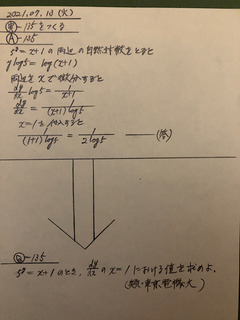 2021.07.13 (火)
B-135をつくる
A-135
5^y = x+1 の両辺の自然対数をとると
y log5 = log(x+1)
両辺をxで微分すると
dy/dx log5 = 1/(x+1)
dy/dx = 1/((x+1)log5)
x=1を代入すると
1/((1+1)log5) = 1/(2log5) ——(答)
B-135
5^y = x+1 のとき, dy/dx の x=1 における値を求めよ.
(類・東京電機大)